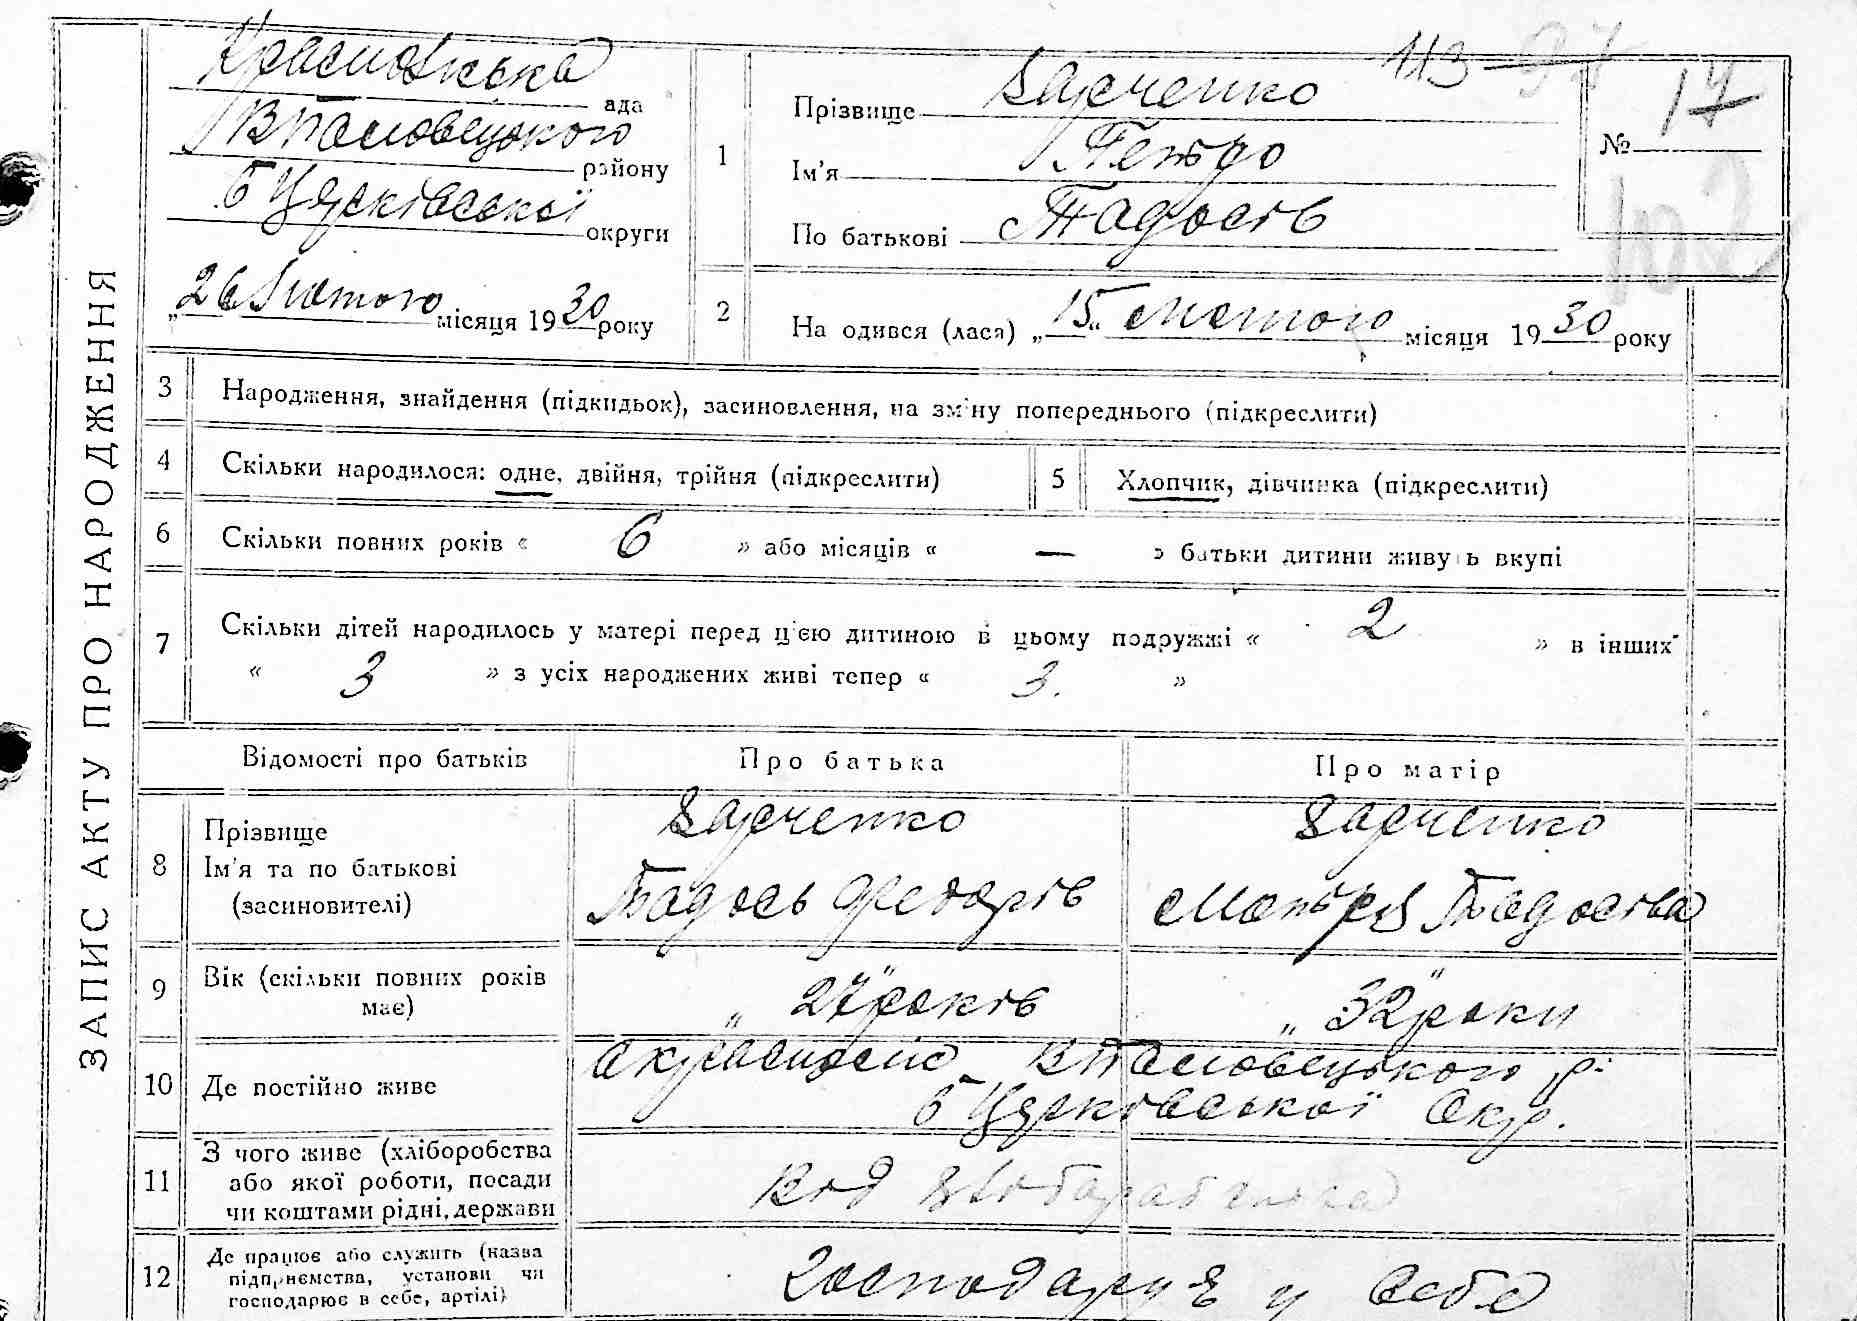 ЗАПИС АКТУ ПРО НАРОДЖЕННЯ
113 97
ада
району
Б Церківської
округи
„26 Лютого місяця 1930 року
1
Прізвище Харченко
Ім'я Петро
По батькові Тадосів
№ 17
2
На одився (лася) „15“ Лютого місяця 1930 року
3 Народження, знайдення (підкидьок), засиновлення, на зміну попереднього (підкреслити)
4 Скільки народилося: одне, двійня, трійня (підкреслити)
5 Хлопчик, дівчинка (підкреслити)
6 Скільки повних років « 6 » або місяців « — » батьки дитини живуть вкупі
7 Скільки дітей народилось у матері перед цією дитиною в цьому подружжі « 2 » в інших
« 3 » з усіх народжених живі тепер « 3. »
Відомості про батьків Про батька Про матір
8 Прізвище Харченко Харченко
Ім'я та по батькові Тадось Федорів Мотря Тадосіва
(засиновителі)
9 Вік (скільки повних років має) „27“ років „32“ роки
10 Де постійно живе
Б Церківської Окр.
11 З чого живе (хліборобства
або якої роботи, посади
чи коштами рідні, держави
Від
12 Де працює або служить (назва
підприємства, установи чи
господарює в себе, артілі)
Господарує у себе